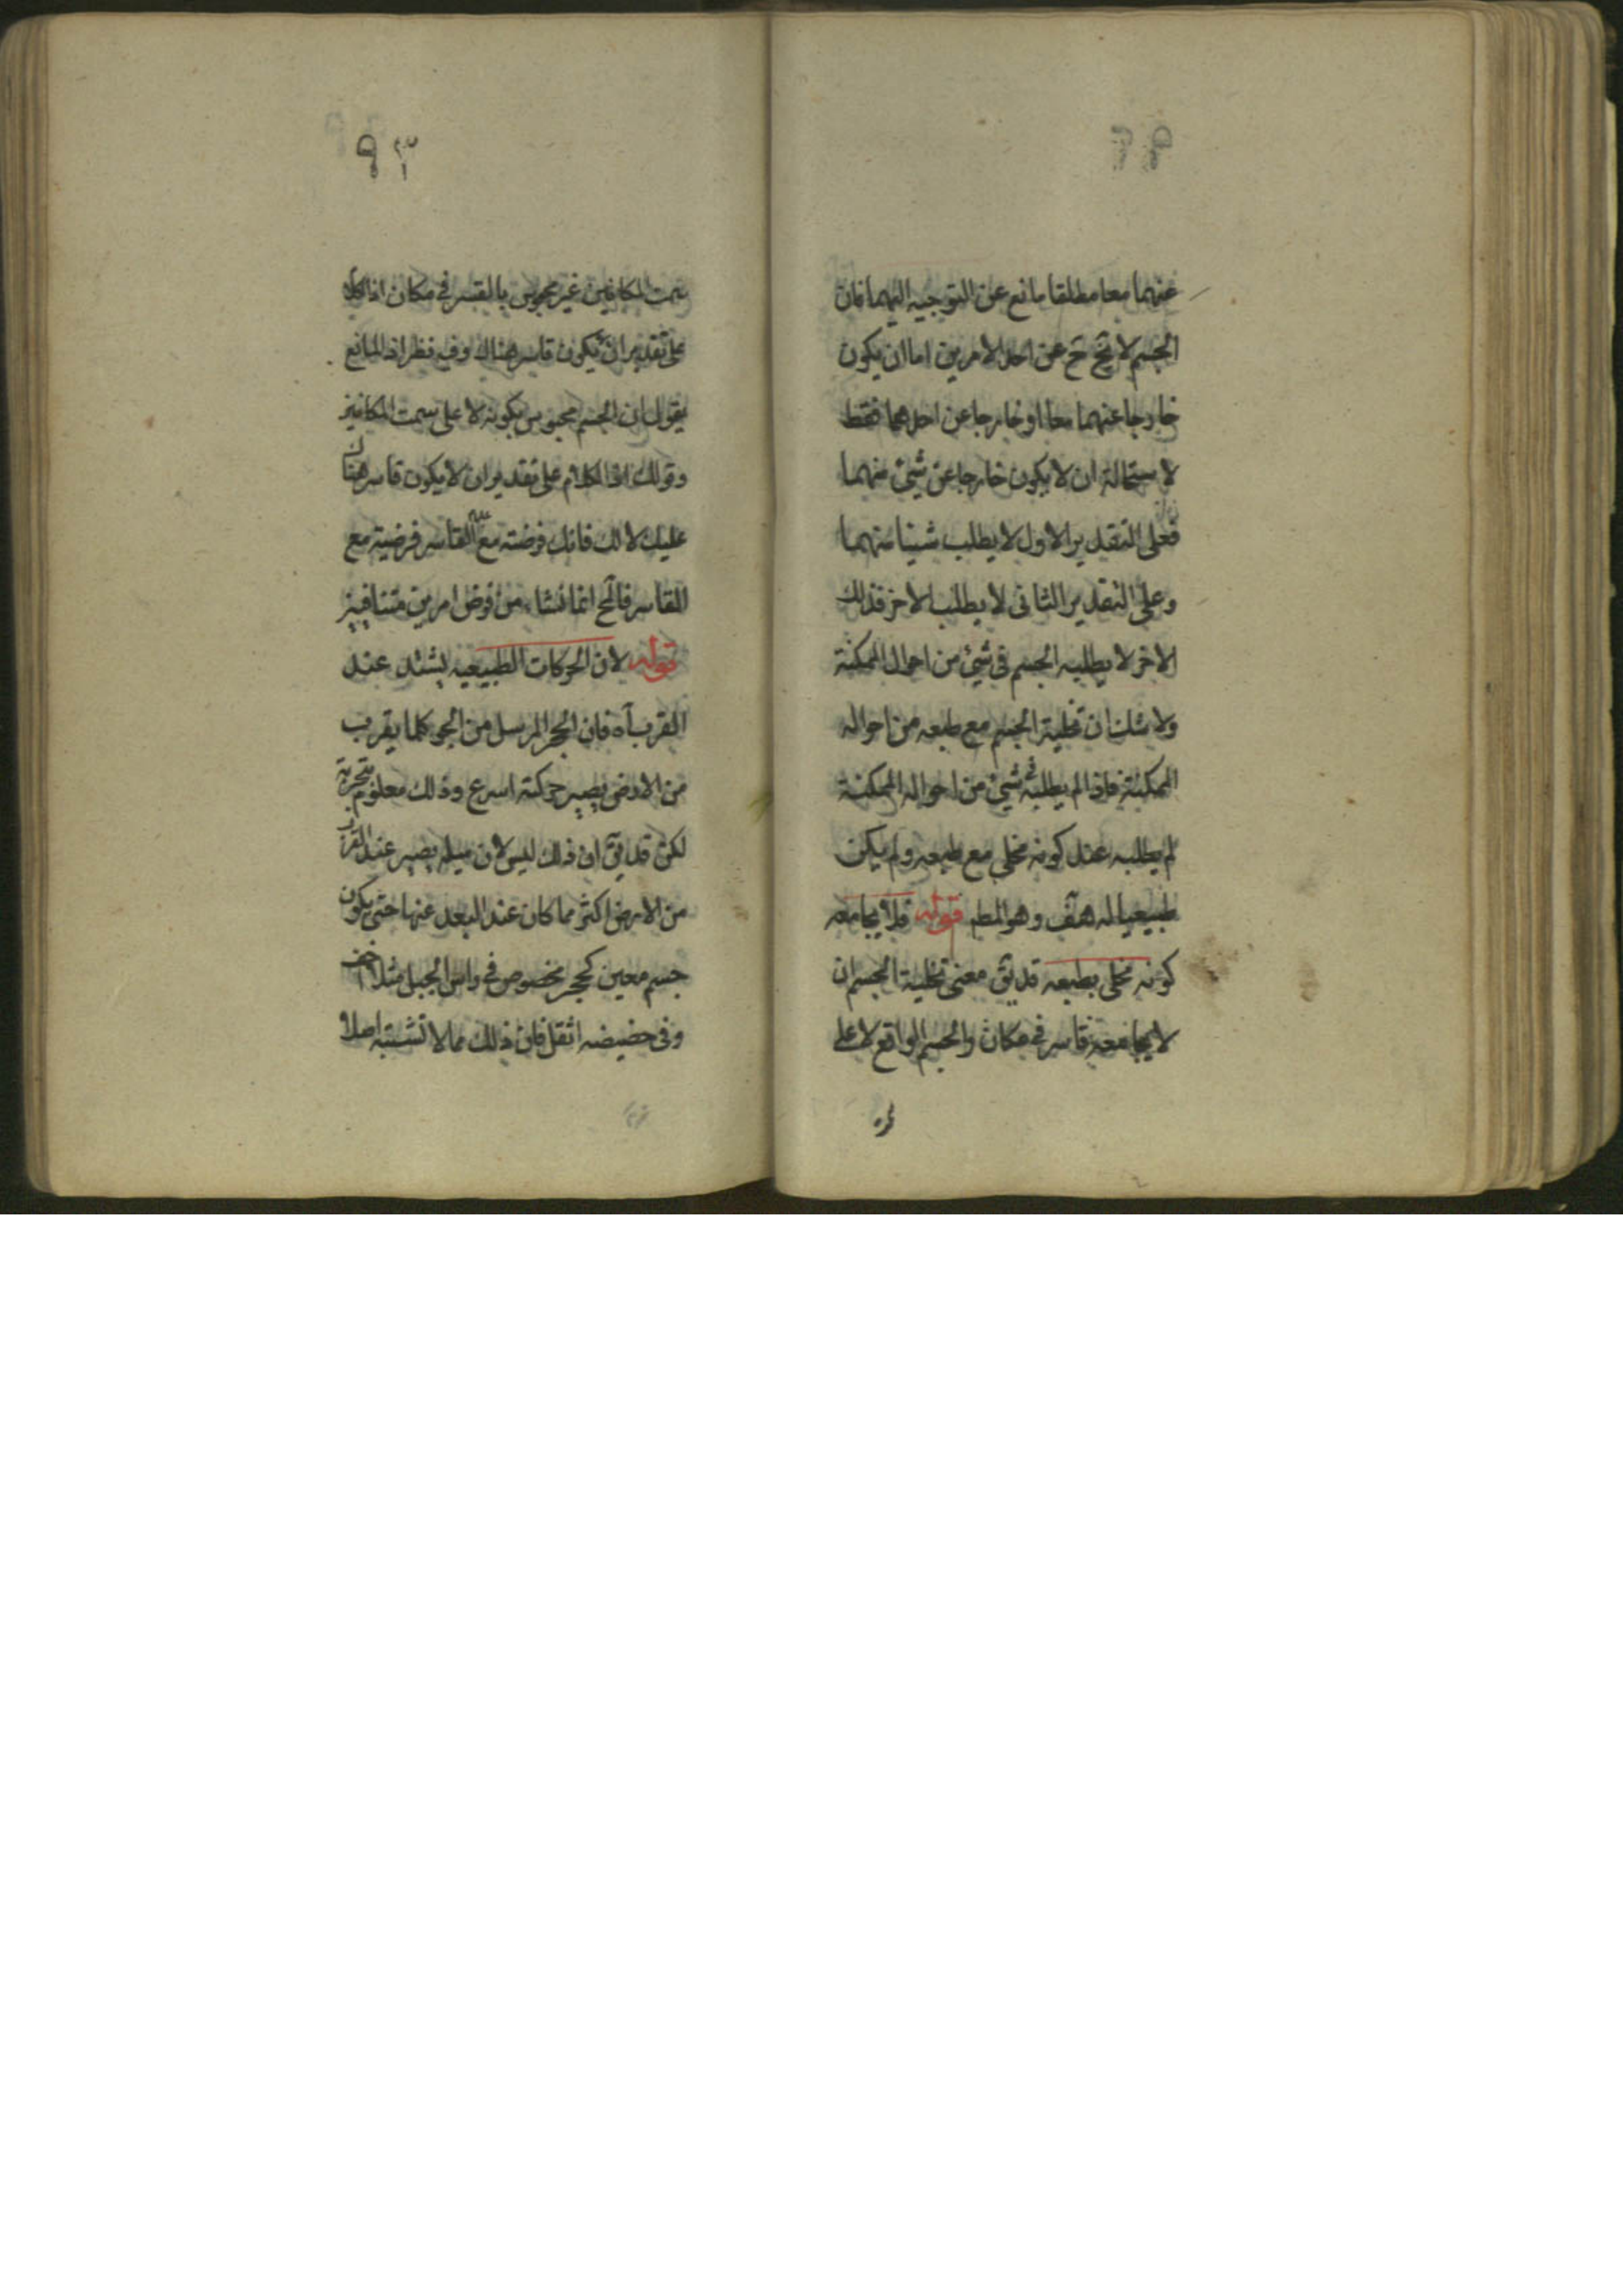 عنهما معا مطلقا مانع عن التوجيه اليهما فان
الجسم لا يخ ح عن احد الامرين اما ان يكون
خارجا عنهما معا او خارجا عن احدهما فقط
لاستحالة ان لا يكون خارجا عن شيئ منهما
فعلى التقدير الاول لا يطلب شيئا منهما
وعلى التقدير الثانى لا يطلب الاخر فذلك
الاخر لا يطلبه الجسم فى شيئ من احوال الممكنة
ولا شك ان تخلية الجسم مع طبعه من احواله
الممكنة فاذا لم يطلبه فى شيئ من احواله الممكنة
لم يطلبه عند كونه مخلى مع طبعه ولم يكن
طبيعيا له هف وهو المط قوله فلا يجامعه
كونه مخلى بطبعه قد يق معنى تخلية الجسم ان
لا يجامعه قاسر فى مكان والجسم الواقع لا على
٩٣
سمت المكانين غير محبوس بالقسر فى مكان اذ الكلام
على تقدير ان لا يكون قاسر هناك وفيه نظر اذ المانع
يقول ان الجسم محبوس بكونه لا على سمت المكانين
وقولك اذ الكلام على تقدير ان لا يكون قاسر هناك
عليك لا لك فانك فرضته مع القاسر فرضية مع
القاسر فالمح انما نشاء من فرض امرين متنافيين
قوله لان الحركات الطبيعيه يشتد عند
القرب آه فان الحجر المرسل من الجو كلما يقرب
من الارض يصير حركته اسرع وذلك معلوم بتجربة
لكن قد يق ان ذلك ليس لان ميله يصير عند القرب
من الارض اكثر مما كان عند البعد عنها حتى يكون
جسم معين كحجر مخصوص فى راس الجبل مثلا اخف
وفى حضيضه اثقل فان ذلك مما لا تشتبه اصلا